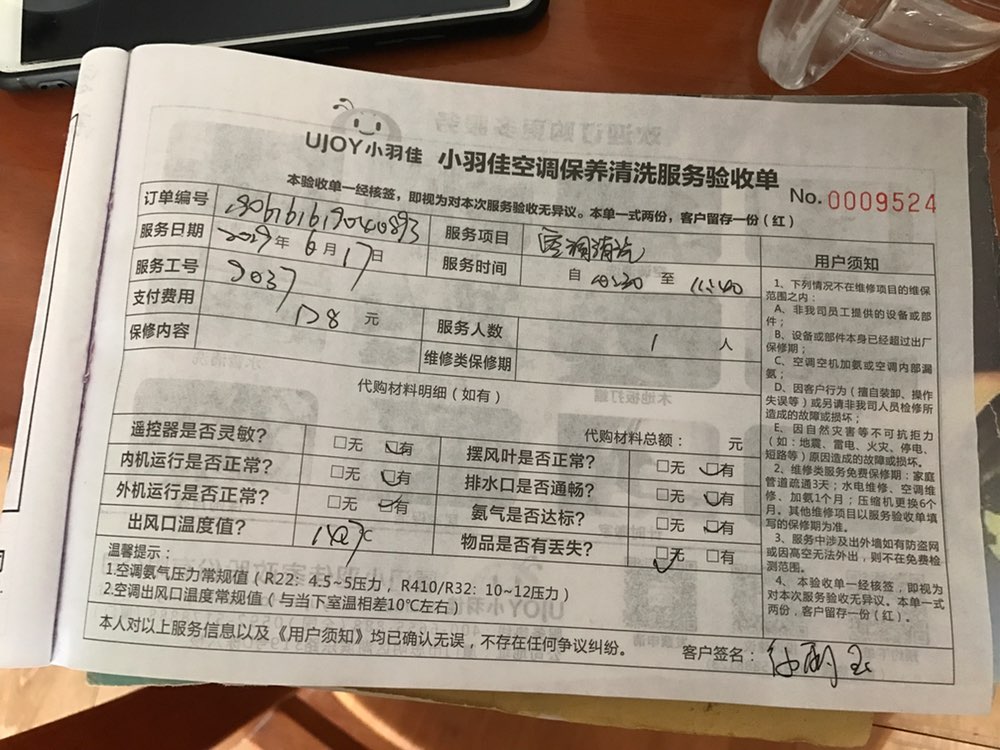 UJOY小羽佳 小羽佳空调保养清洗服务验收单
No.0009524
本验收单一经核签，即视为对本次服务验收无异议。本单一式两份，客户留存一份（红）
订单编号
服务项目 空调清洗
服务日期 2019年6月17日
服务时间 自 10:30 至 11:40
服务工号 2037
支付费用 128 元
服务人数 1 人
保修内容
维修类保修期
代购材料明细（如有）
代购材料总额： 元
遥控器是否灵敏？ □无 □有
摆风叶是否正常？ □无 □有
内机运行是否正常？ □无 □有
排水口是否通畅？ □无 □有
外机运行是否正常？ □无 □有
氨气是否达标？ □无 □有
出风口温度值？ ℃
物品是否有丢失？ □无 □有
温馨提示：
1.空调氨气压力常规值（R22：4.5~5压力，R410/R32：10~12压力）
2.空调出风口温度常规值（与当下室温相差10℃左右）
本人对以上服务信息以及《用户须知》均已确认无误，不存在任何争议纠纷。
客户签名：
用户须知
1、下列情况不在维修项目的维保
范围之内：
A、非我司员工提供的设备或部
件；
B、设备或部件本身已经超过出厂
保修期；
C、空调空机加氨或空调内部漏
氨；
D、因客户行为（擅自装卸、操作
失误等）或另请非我司人员检修所
造成的故障或损坏；
E、因自然灾害等不可抗拒力
（如：地震、雷电、火灾、停电、
短路等）原因造成的故障或损坏。
2、维修类服务免费保修期：家庭
管道疏通3天；水电维修、空调维
修、加氨1个月；压缩机更换6个
月。其他维修项目以服务验收单填
写的保修期为准。
3、服务中涉及出外墙如有防盗网
或因高空无法外出，则不在免费检
测范围。
4、本验收单一经核签，即视为
对本次服务验收无异议。本单一式
两份，客户留存一份（红）。